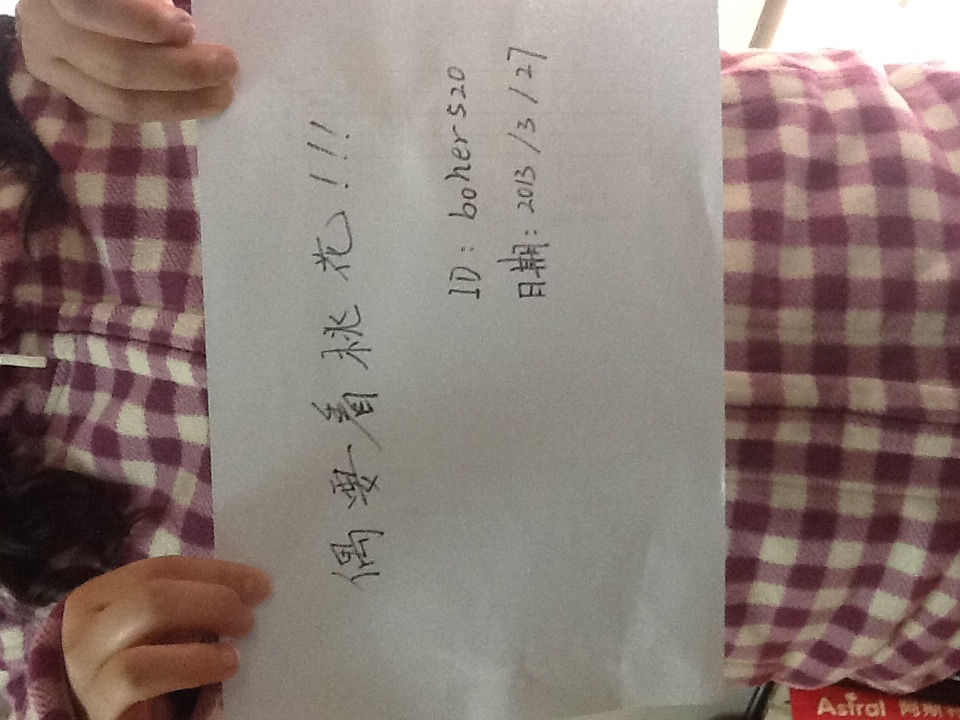 偶要看桃花!!!
ID: boher520
日期: 2013/3/27
Astral